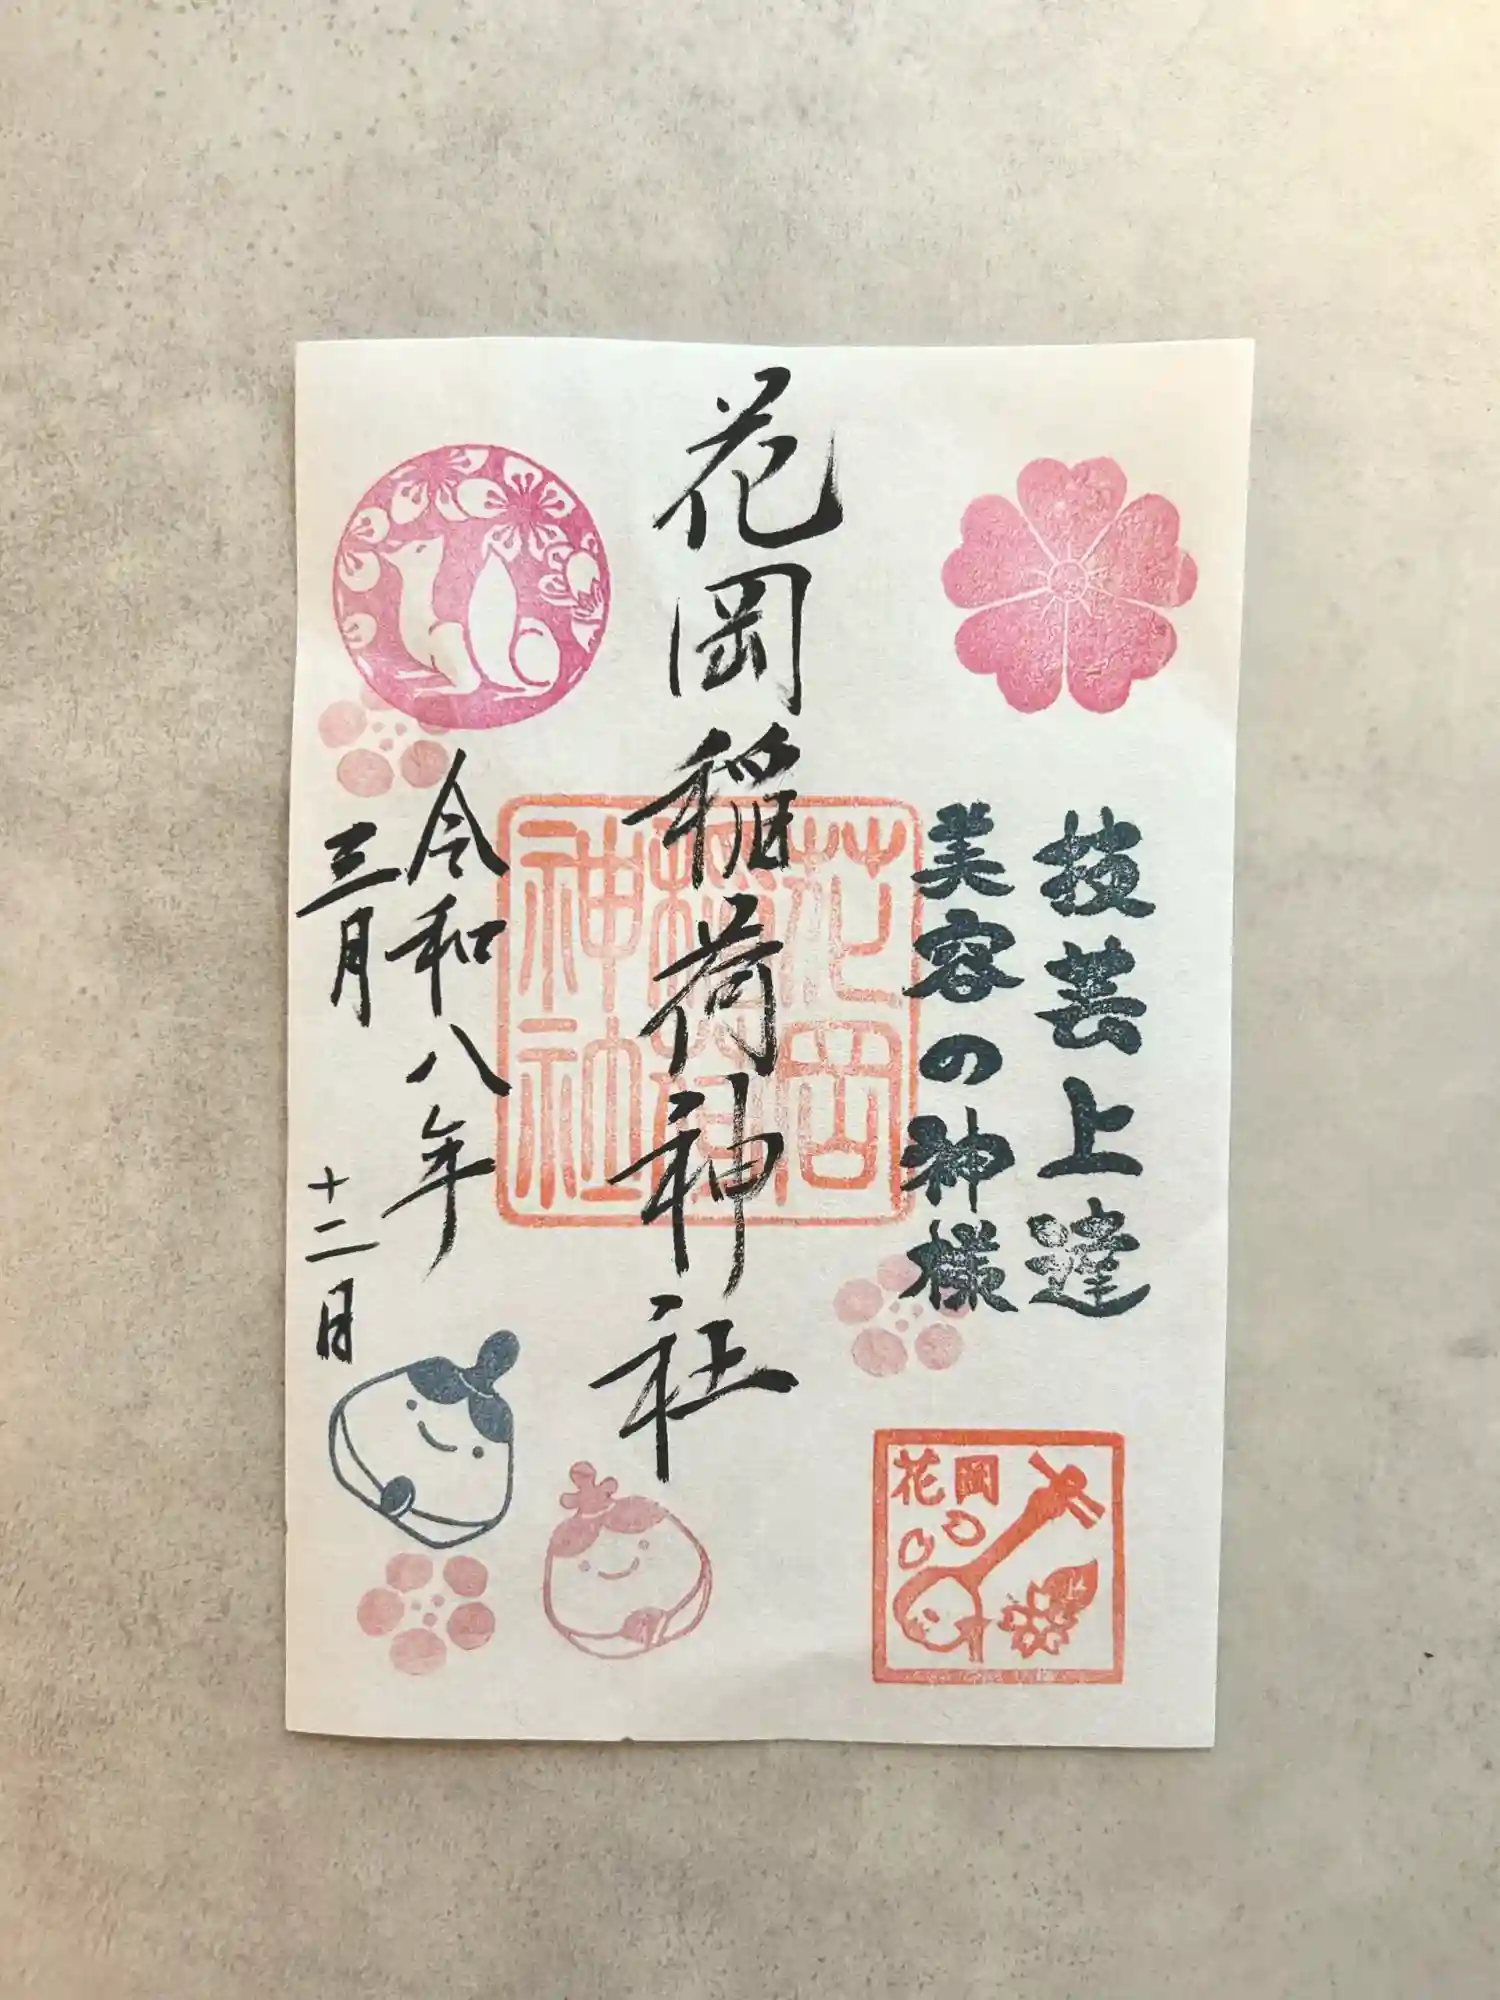 技芸上達
美容の神様
花岡稲荷神社
花岡
稲荷
神社
令和八年
三月
十二日
花岡